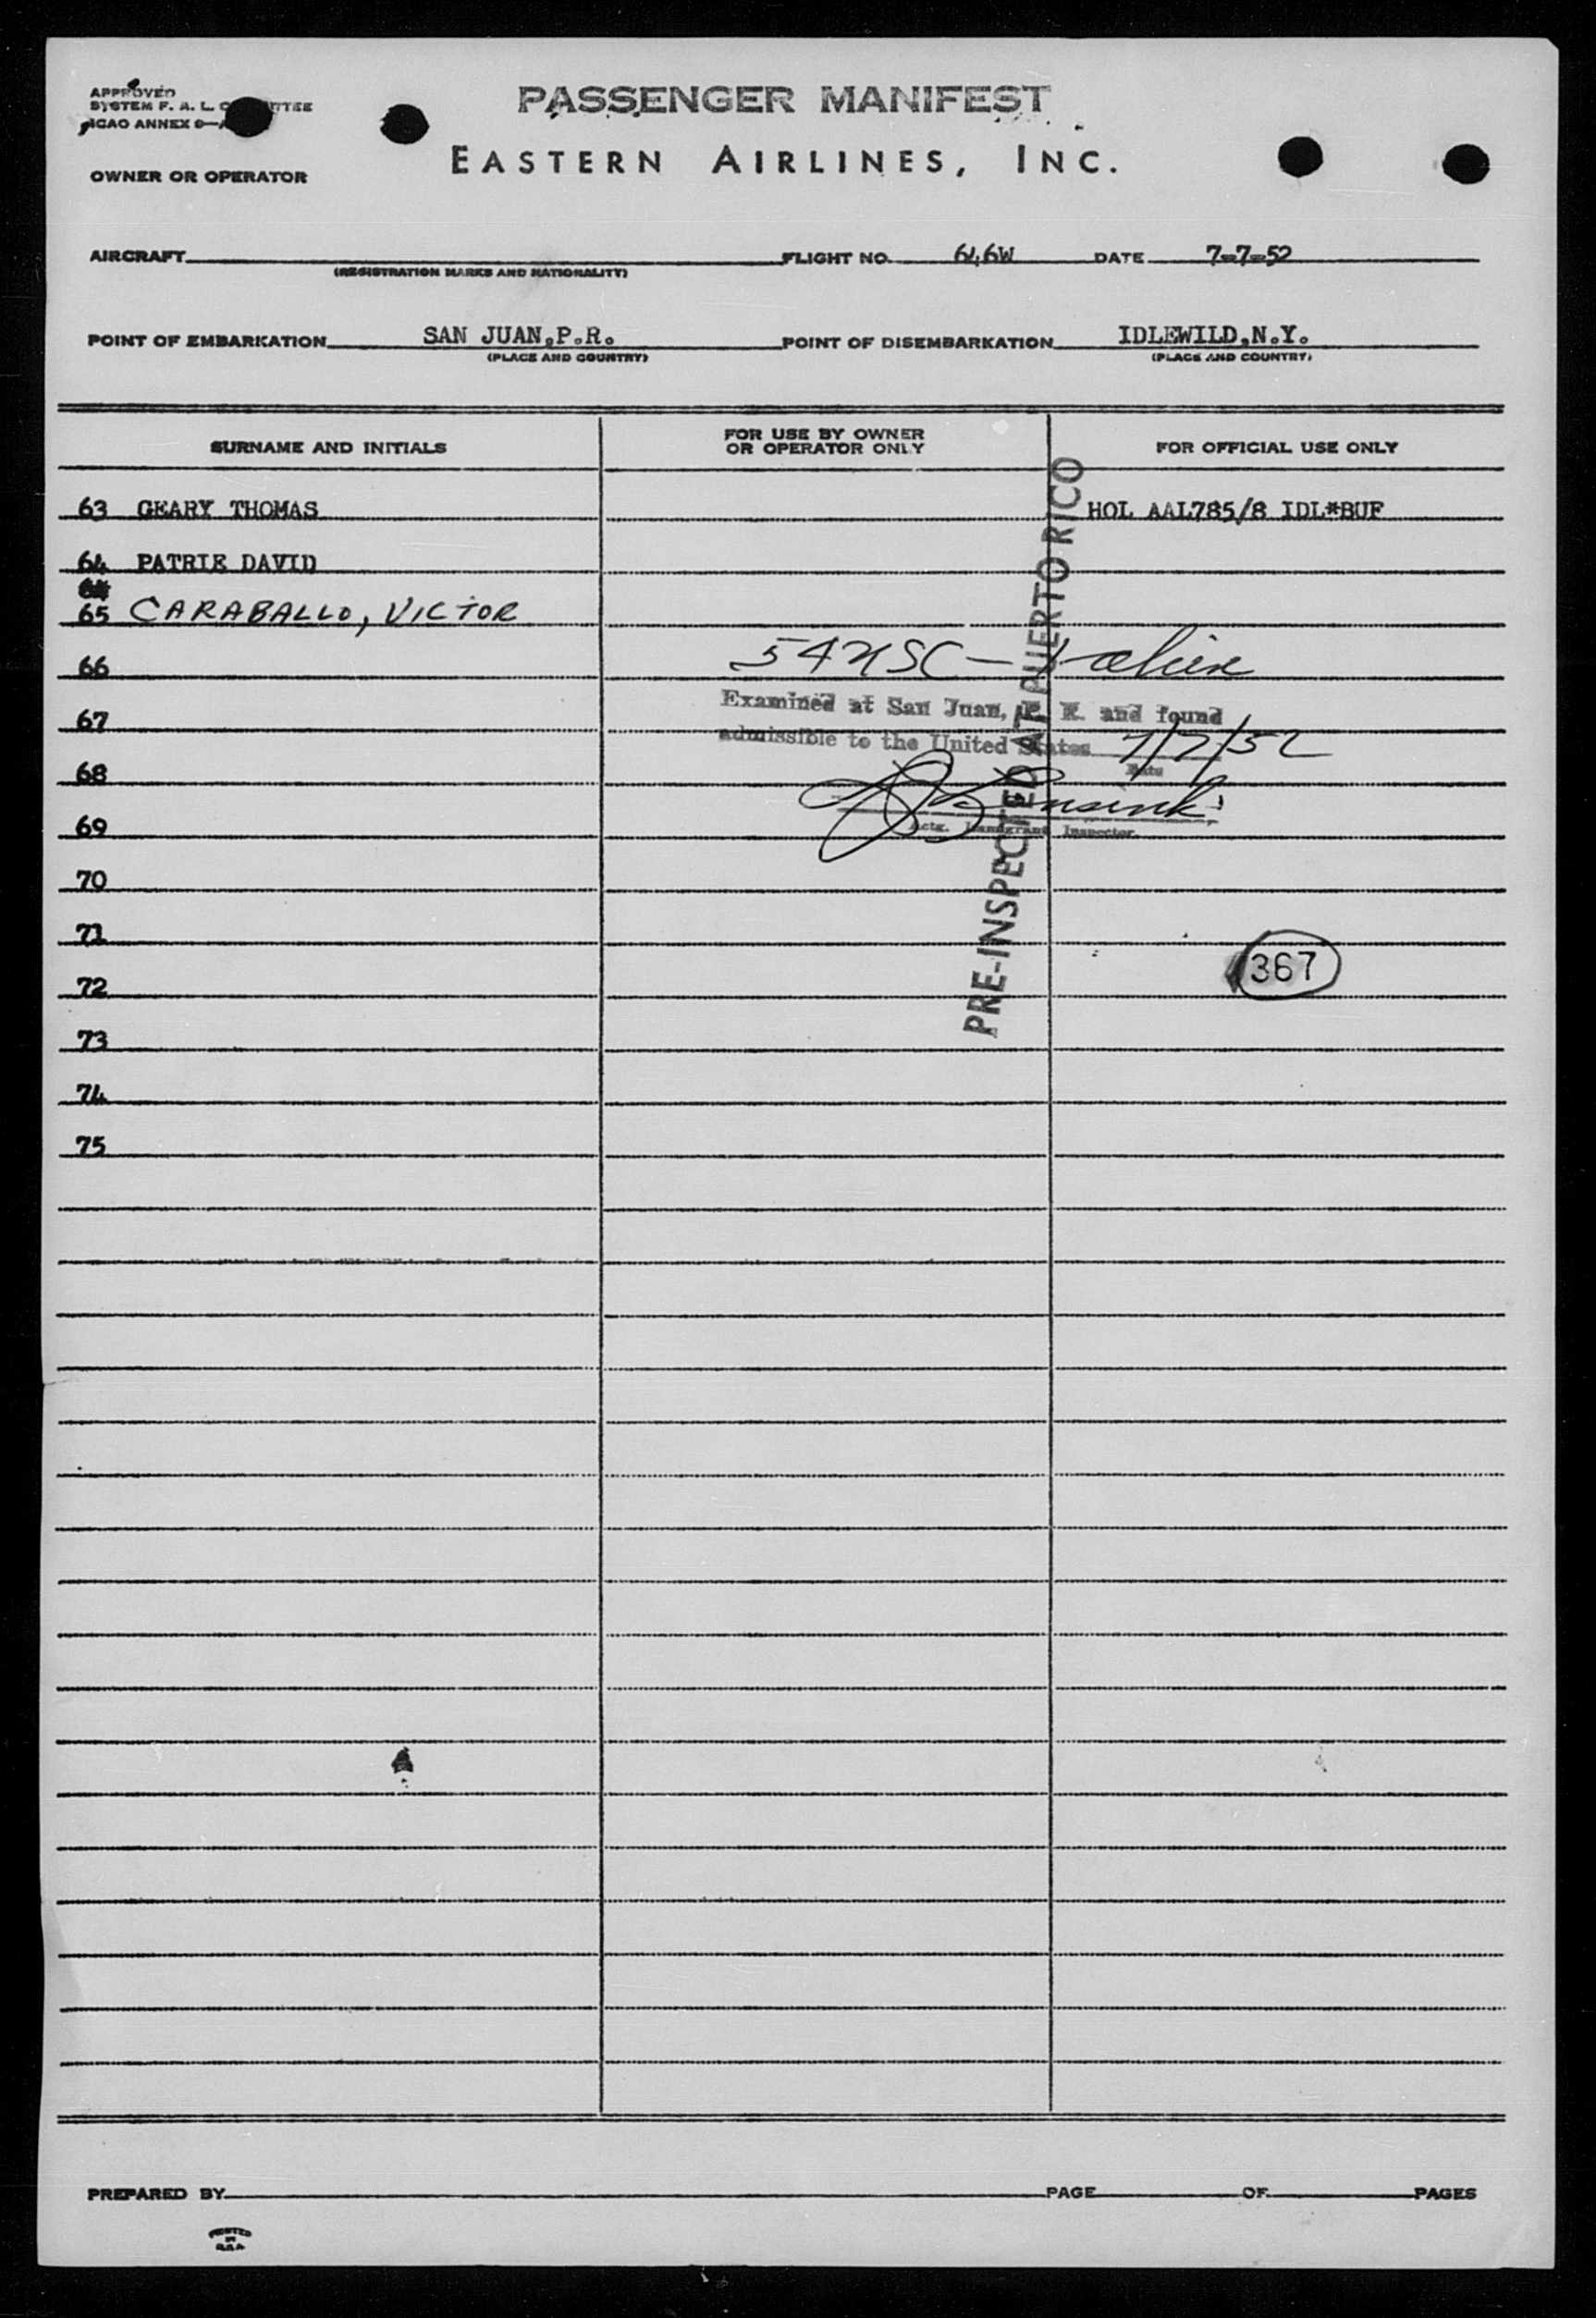 APPROVED
SYSTEM F. A. L. C TTEE
ICAO ANNEX 9—A
PASSENGER MANIFEST
EASTERN AIRLINES, INC.
OWNER OR OPERATOR
AIRCRAFT FLIGHT NO. 646W DATE 7-7-52
(REGISTRATION MARKS AND NATIONALITY)
POINT OF EMBARKATION SAN JUAN,P.R. POINT OF DISEMBARKATION IDLEWILD,N.Y.
(PLACE AND COUNTRY) (PLACE AND COUNTRY)
SURNAME AND INITIALS
FOR USE BY OWNER
OR OPERATOR ONLY
FOR OFFICIAL USE ONLY
63 GEARY THOMAS HOL AAL785/8 IDL*BUF
64 PATRIE DAVID
64
65 CARABALLO, VICTOR
66 54 USC — 1 alien
Examined at San Juan, P. R. and found
67
admissible to the United States 7/7/52
Date
68
69
Actg. Immigrant Inspector
PRE-INSPECTED AT PUERTO RICO
70
71
367
72
73
74
75
PREPARED BY PAGE OF PAGES
PRINTED
IN
U.S.A.